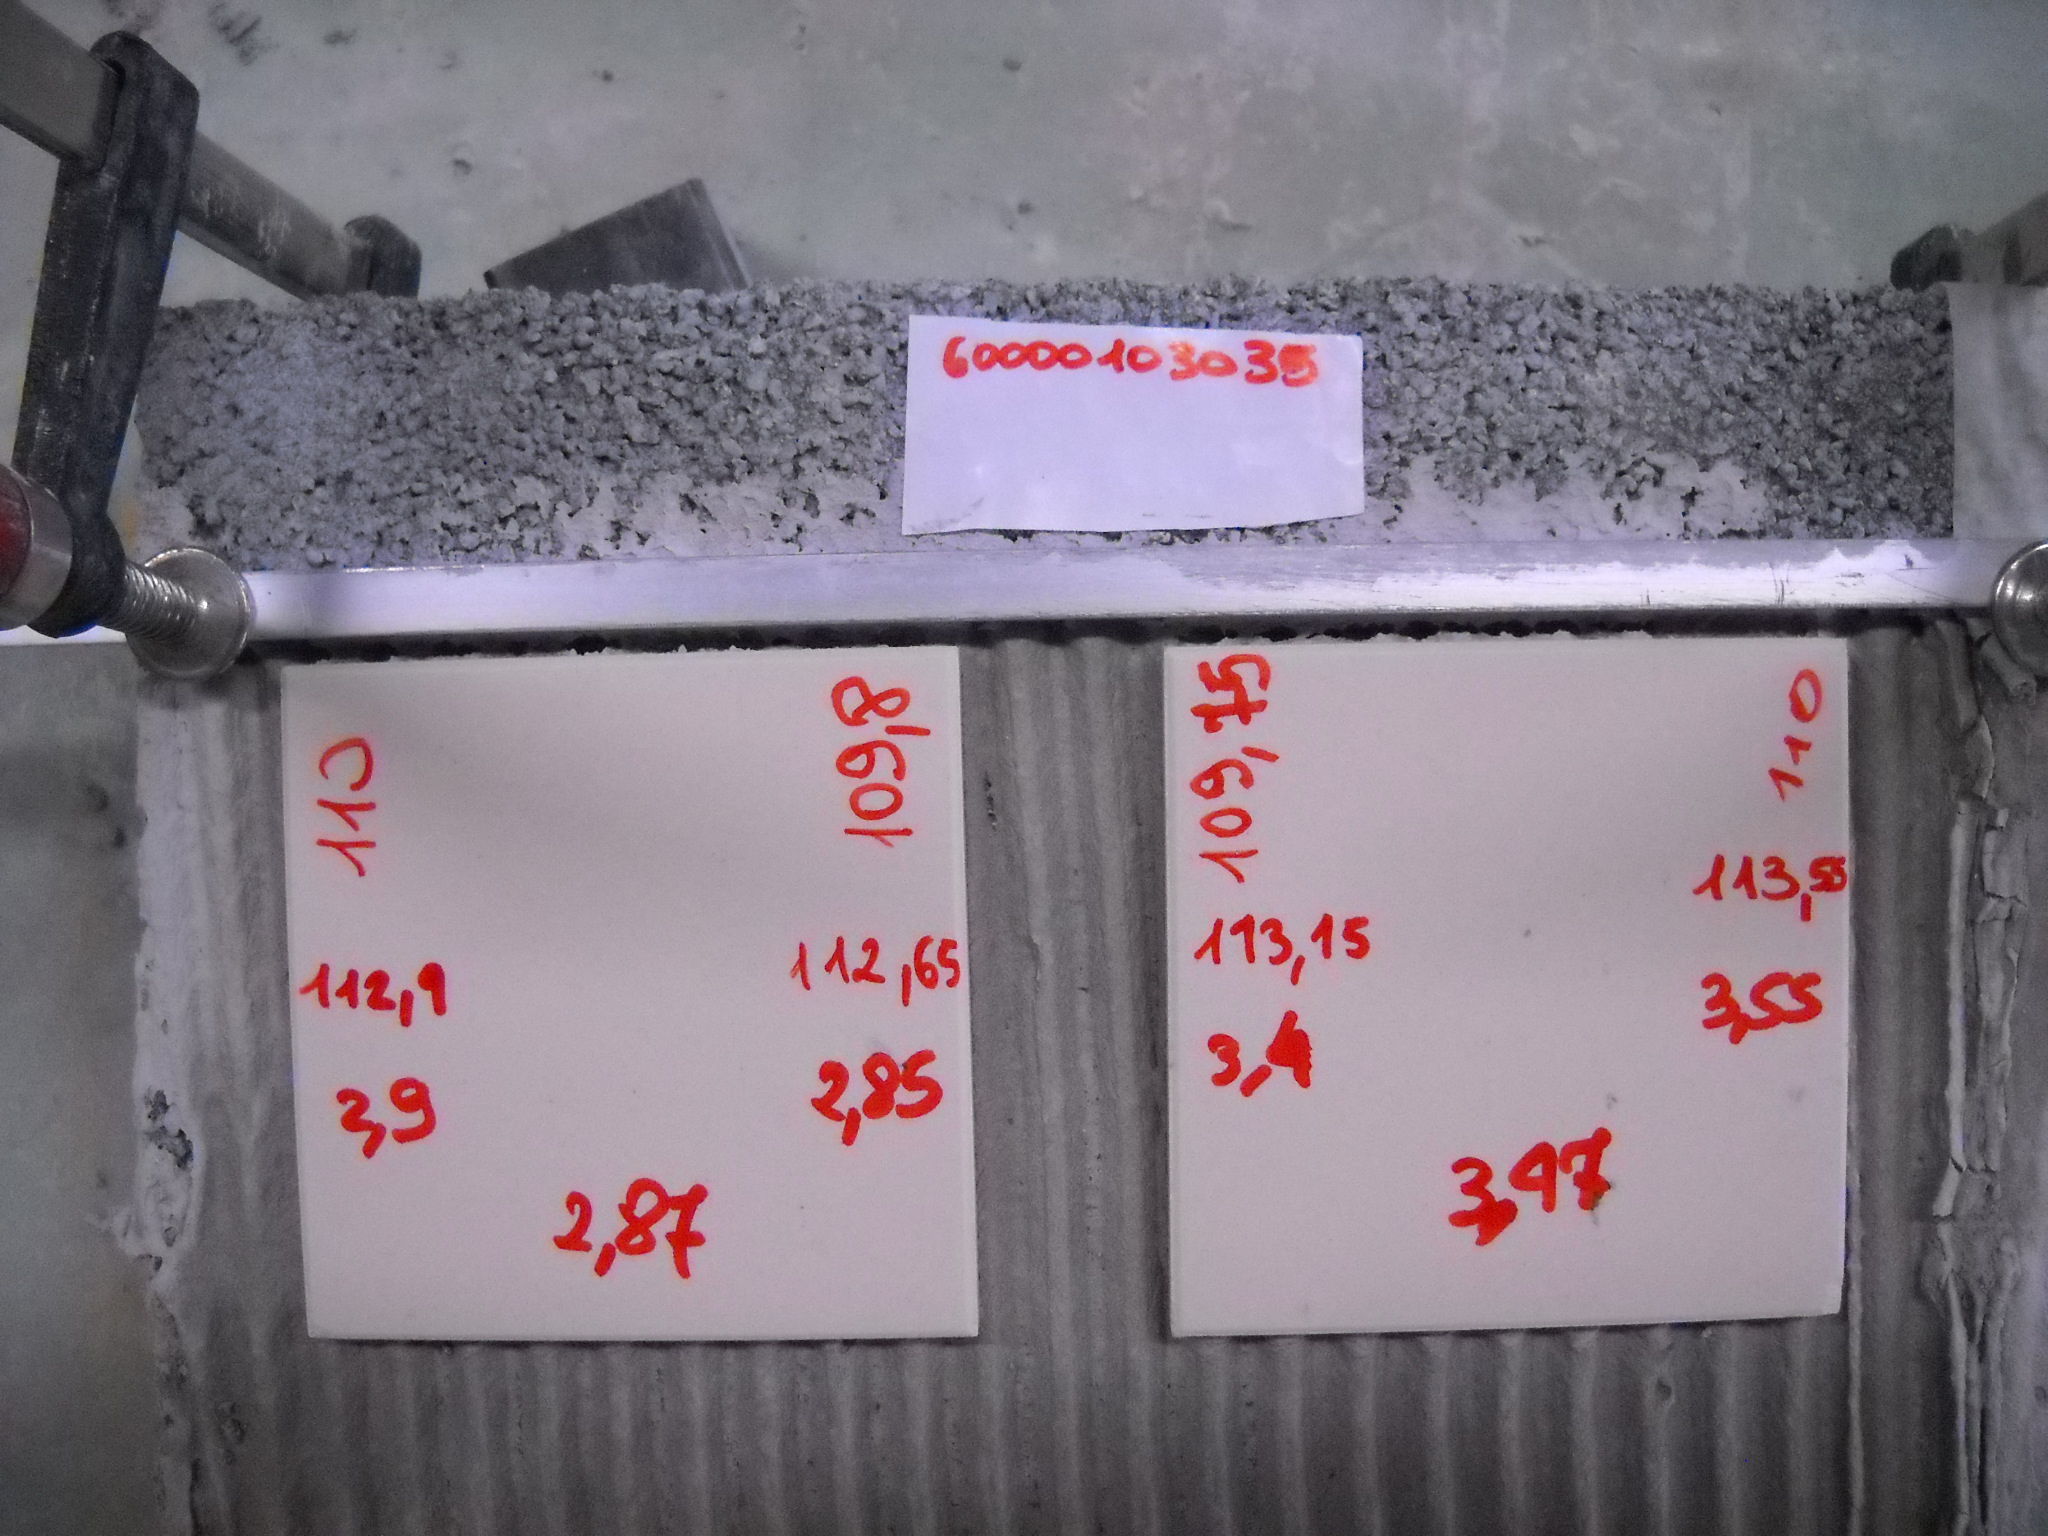 60000103035
110
109,8
112,9
112,65
2,9
2,85
2,87
109,75
110
113,15
113,55
3,4
3,55
3,47